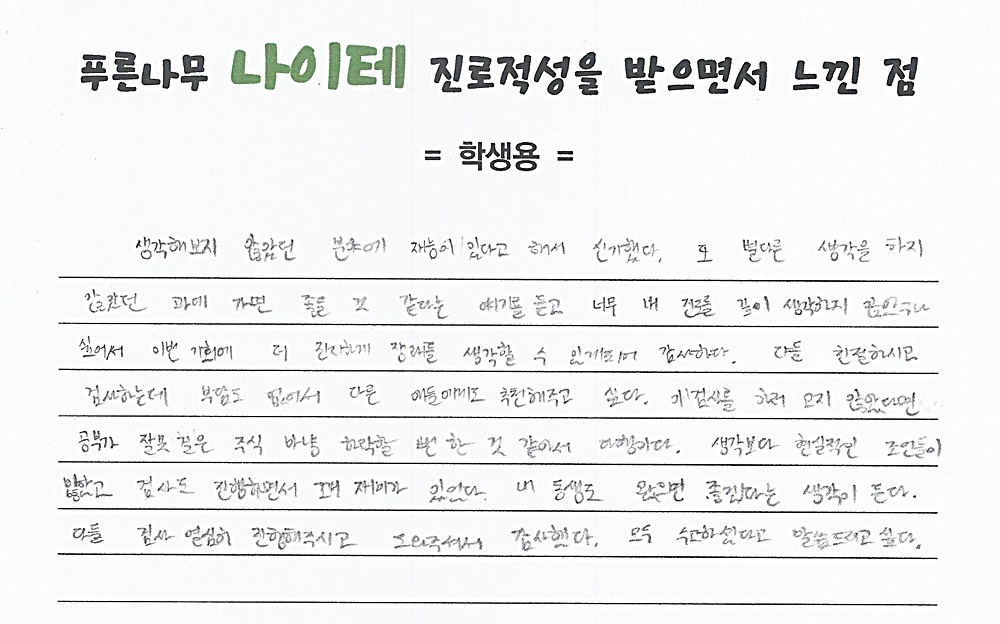 푸른나무 나이테 진로적성을 받으면서 느낀 점
= 학생용 =
생각해보지 않았던 분야에 재능이 있다고 해서 신기했다. 또 별다른 생각을 하지
않았던 과에 가면 좋을 것 같다는 얘기를 듣고 너무 내 진로를 깊이 생각하지
싶어서 이번 기회에 더 진지하게 장래를 생각할 수 있게되어 감사하다. 다들 친절하시고
검사하는데 부담도 없어서 다른 애들에게도 추천해주고 싶다. 이 검사를 하러 오지 않았다면
공부가 잘못 걸은 주식 마냥 하락할 뻔 한 것 같아서 다행이다. 생각보다 현실적인 조언들이
많았고 검사도 진행하면서 꽤 재미가 있었다. 내 동생도 왔으면 좋겠다는 생각이 든다.
다들 검사 열심히 진행해주시고 도와주셔서 감사했다. 모두 수고하셨다고 말씀드리고 싶다.